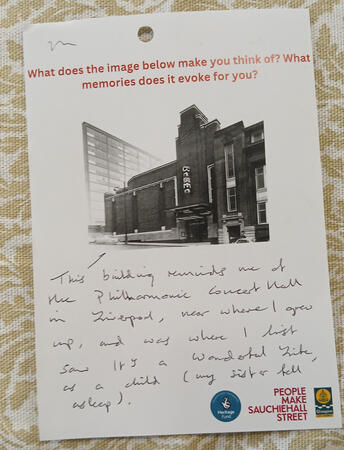 What does the image below make you think of? What
memories does it evoke for you?
This building reminds me of
the Philharmonic Concert Hall
in Liverpool, near where I grew
up, and was where I first
saw It's a Wonderful Life,
as a child (my sister fell
asleep).
Heritage
Fund
PEOPLE
MAKE
SAUCHIEHALL
STREET